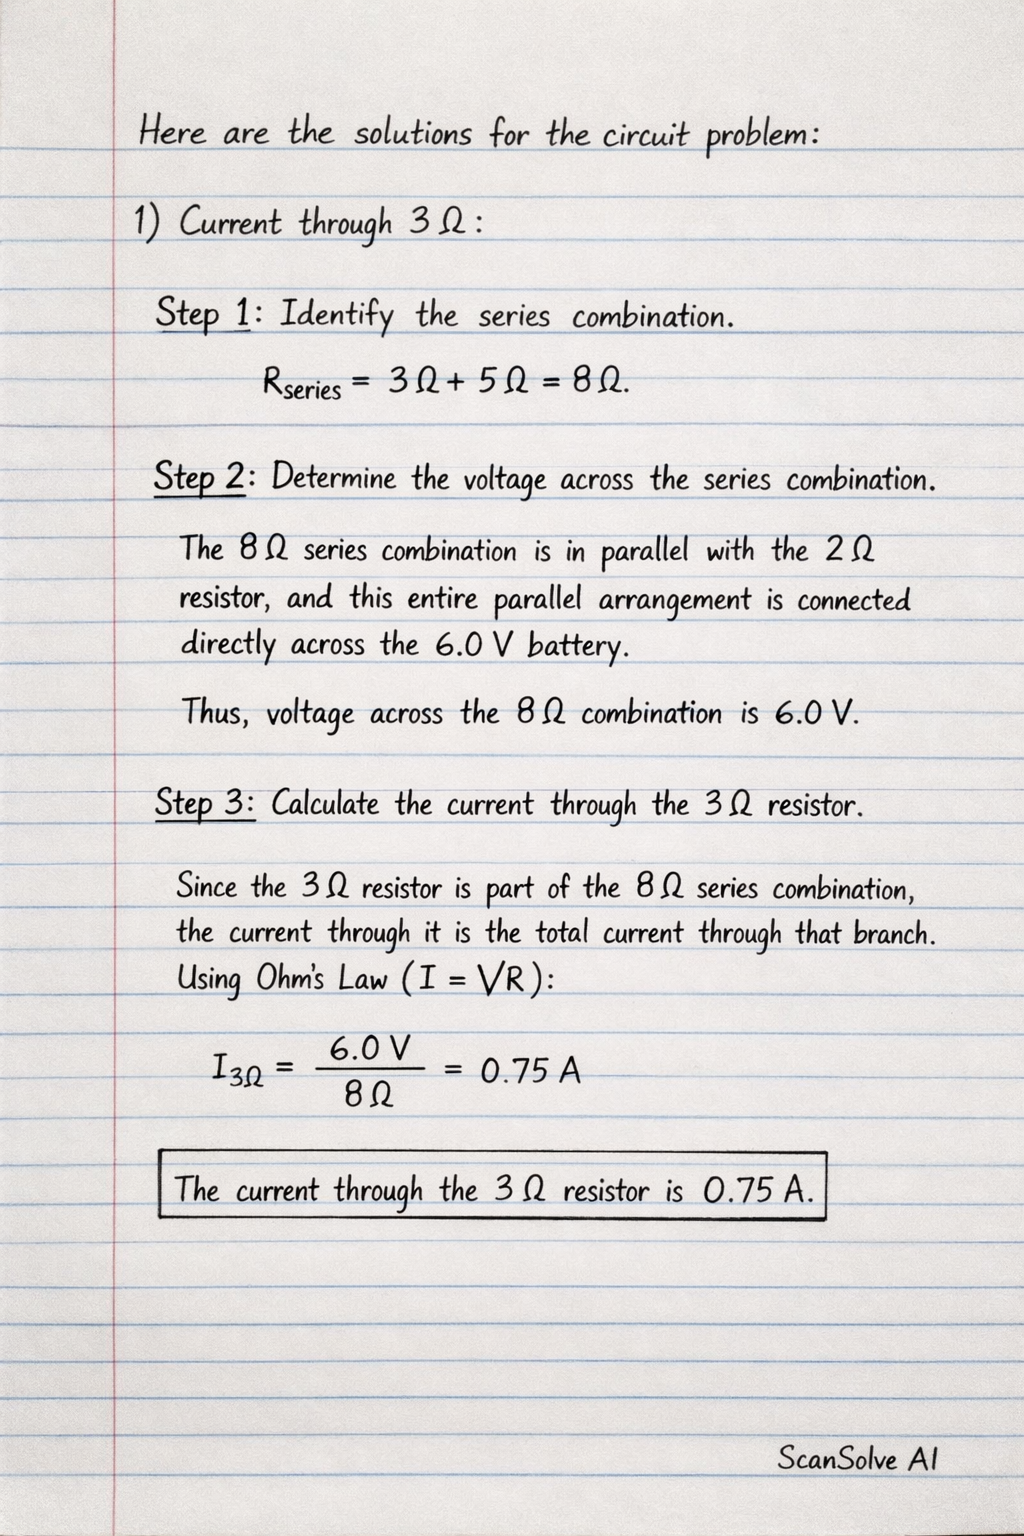 Here are the solutions for the circuit problem:
1) Current through 3 Ω:
Step 1: Identify the series combination.
Rseries = 3 Ω + 5 Ω = 8 Ω.
Step 2: Determine the voltage across the series combination.
The 8 Ω series combination is in parallel with the 2 Ω
resistor, and this entire parallel arrangement is connected
directly across the 6.0 V battery.
Thus, voltage across the 8 Ω combination is 6.0 V.
Step 3: Calculate the current through the 3 Ω resistor.
Since the 3 Ω resistor is part of the 8 Ω series combination,
the current through it is the total current through that branch.
Using Ohm's Law (I = VR):
I3Ω = 6.0 V / 8 Ω = 0.75 A
The current through the 3 Ω resistor is 0.75 A.
ScanSolve AI